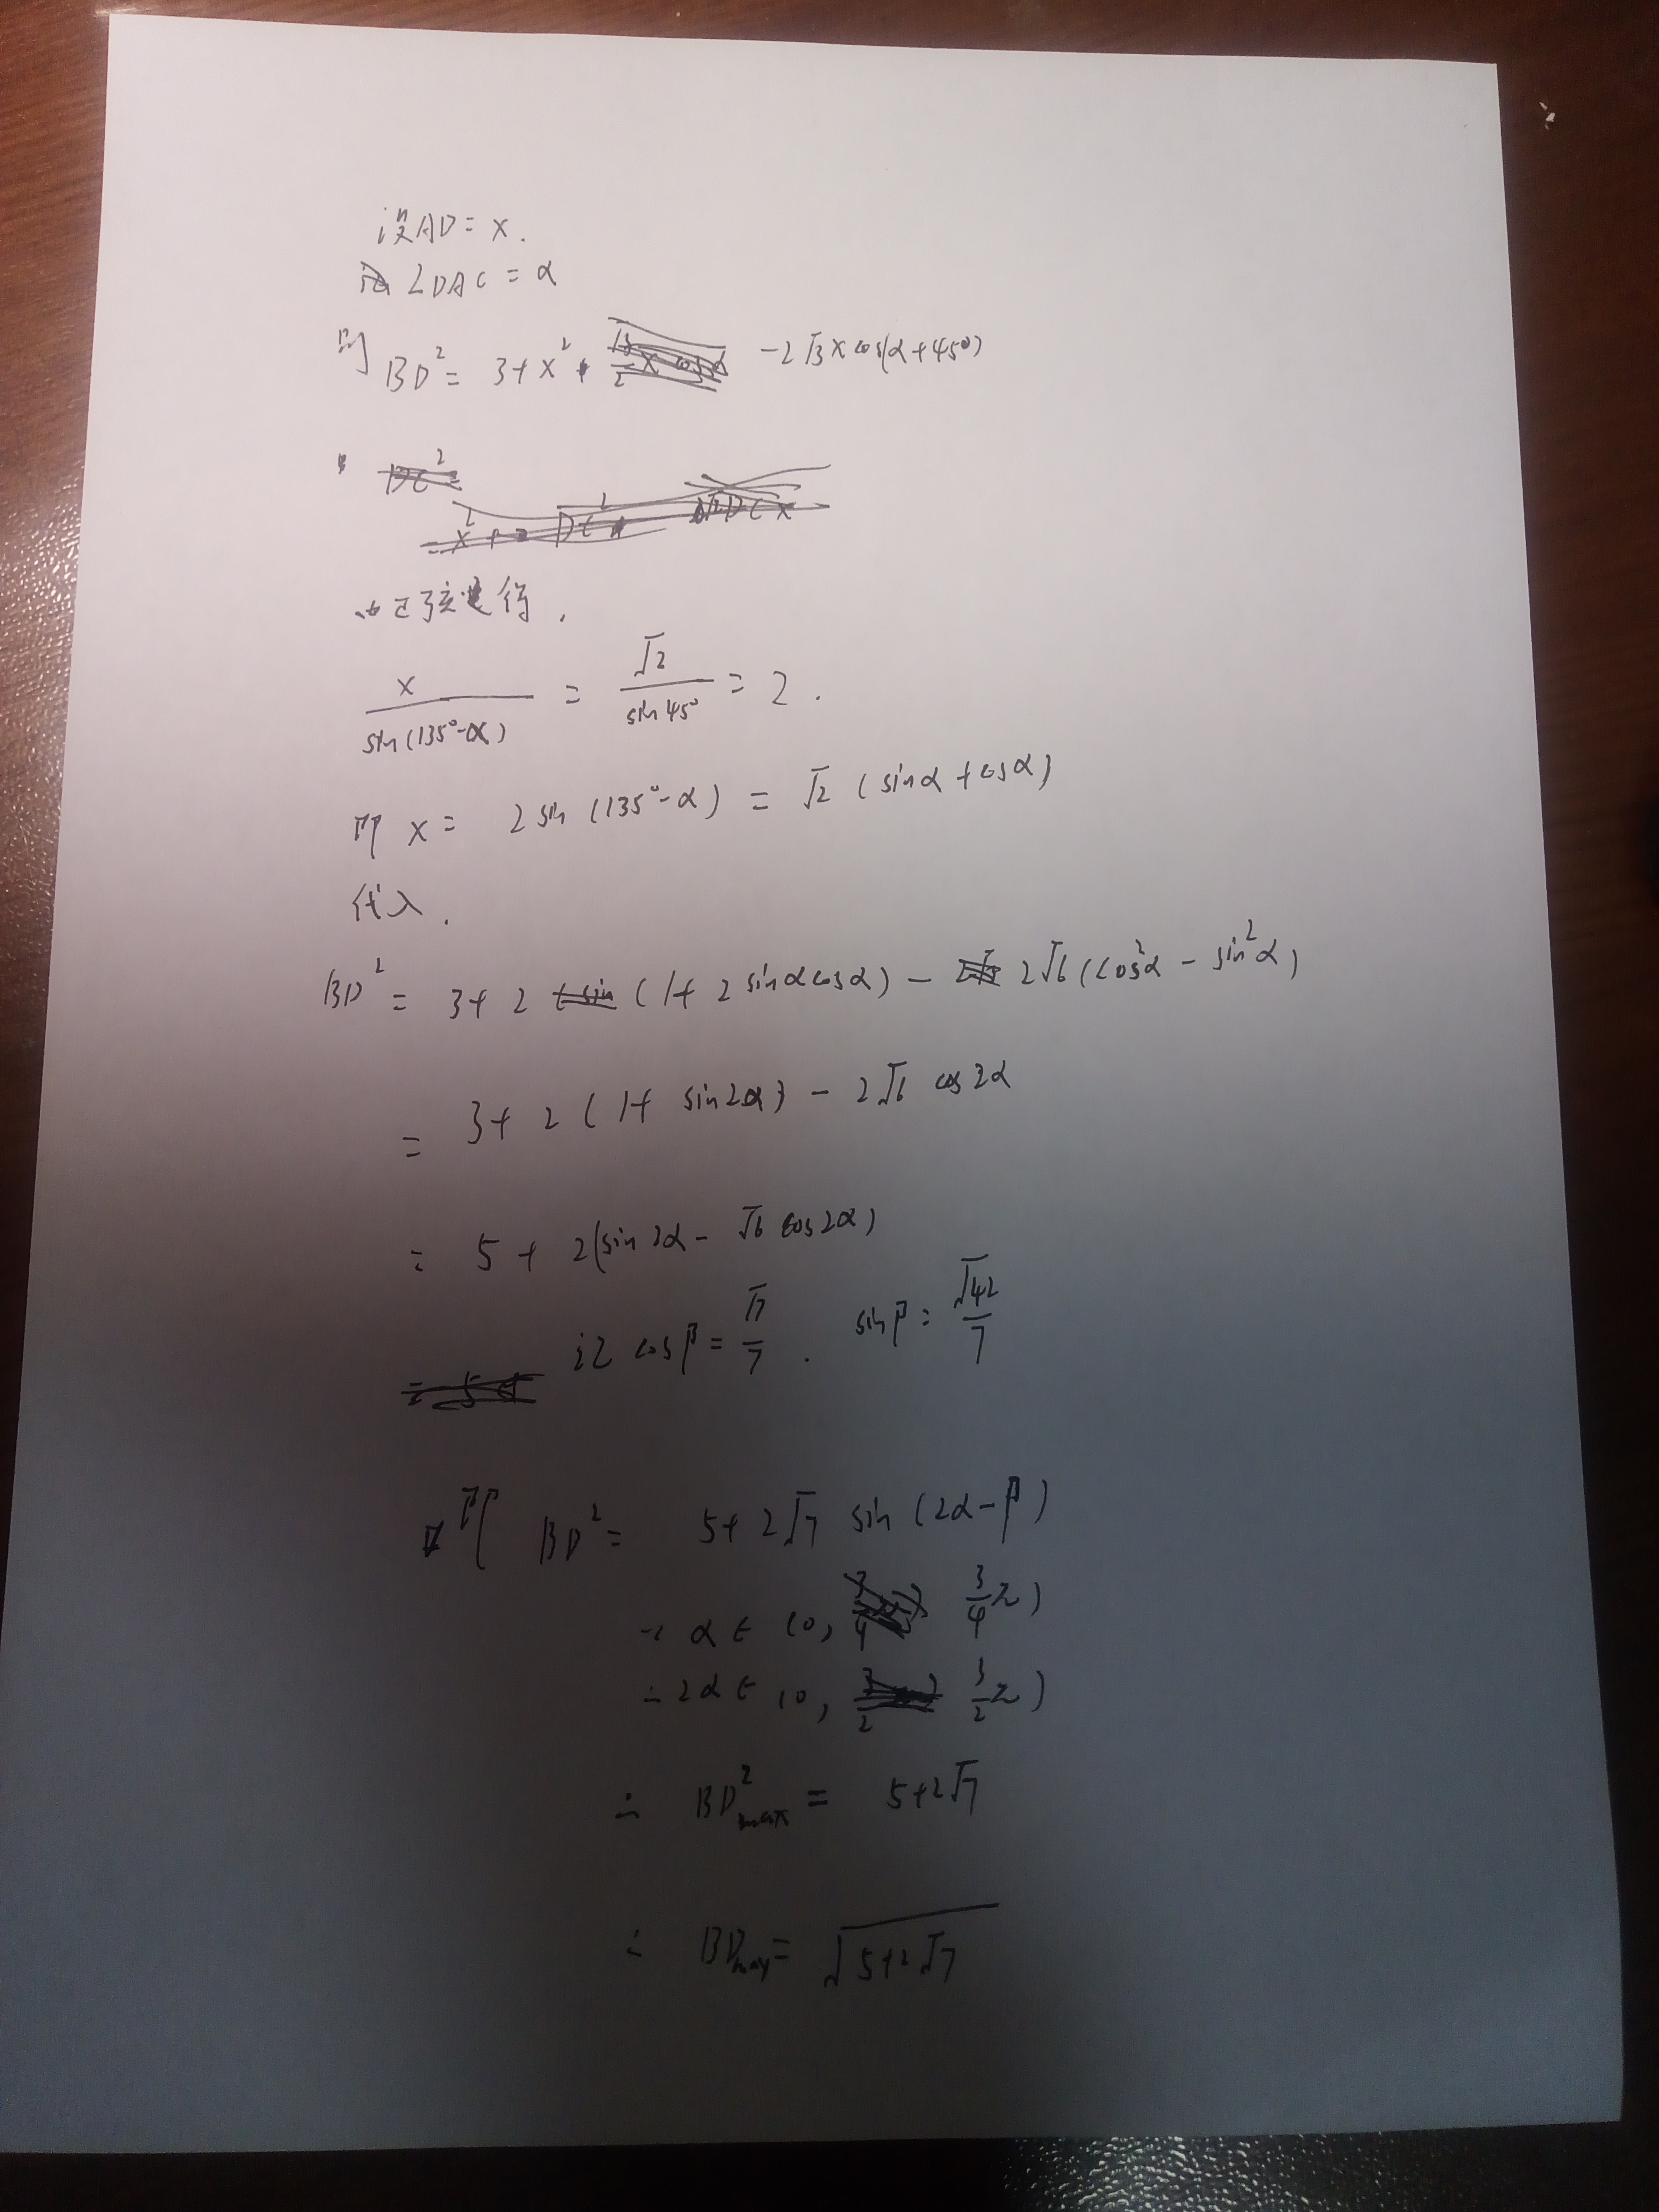 设AD = x .
∠DAC = α
则 BD² = 3 + x² - 2√3 x cos(α+45°)
由正弦定理得 .
x / sin(135°-α) = √2 / sin 45° = 2 .
即 x = 2 sin (135°-α) = √2 ( sinα + cosα )
代入 .
BD² = 3 + 2 (1 + 2 sinα cosα) - 2√6 (cos²α - sin²α)
= 3 + 2 ( 1 + sin2α ) - 2√6 cos 2α
= 5 + 2(sin 2α - √6 cos 2α)
记 cosβ = √7/7 . sinβ = √42/7
即 BD² = 5 + 2√7 sin (2α-β)
∵ α ∈ (0, 3/4 π)
∴ 2α ∈ (0, 3/2 π)
∴ BD²max = 5+2√7
∴ BDmax = √(5+2√7)